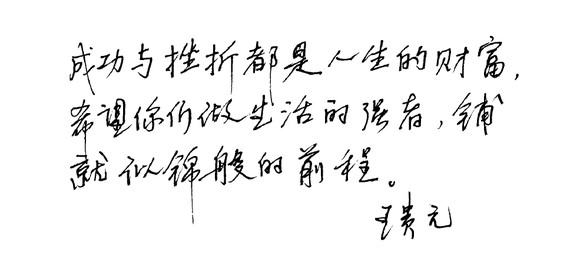 成功与挫折都是人生的财富，
希望你们做生活的强者，铺
就似锦般的前程。
王贵元